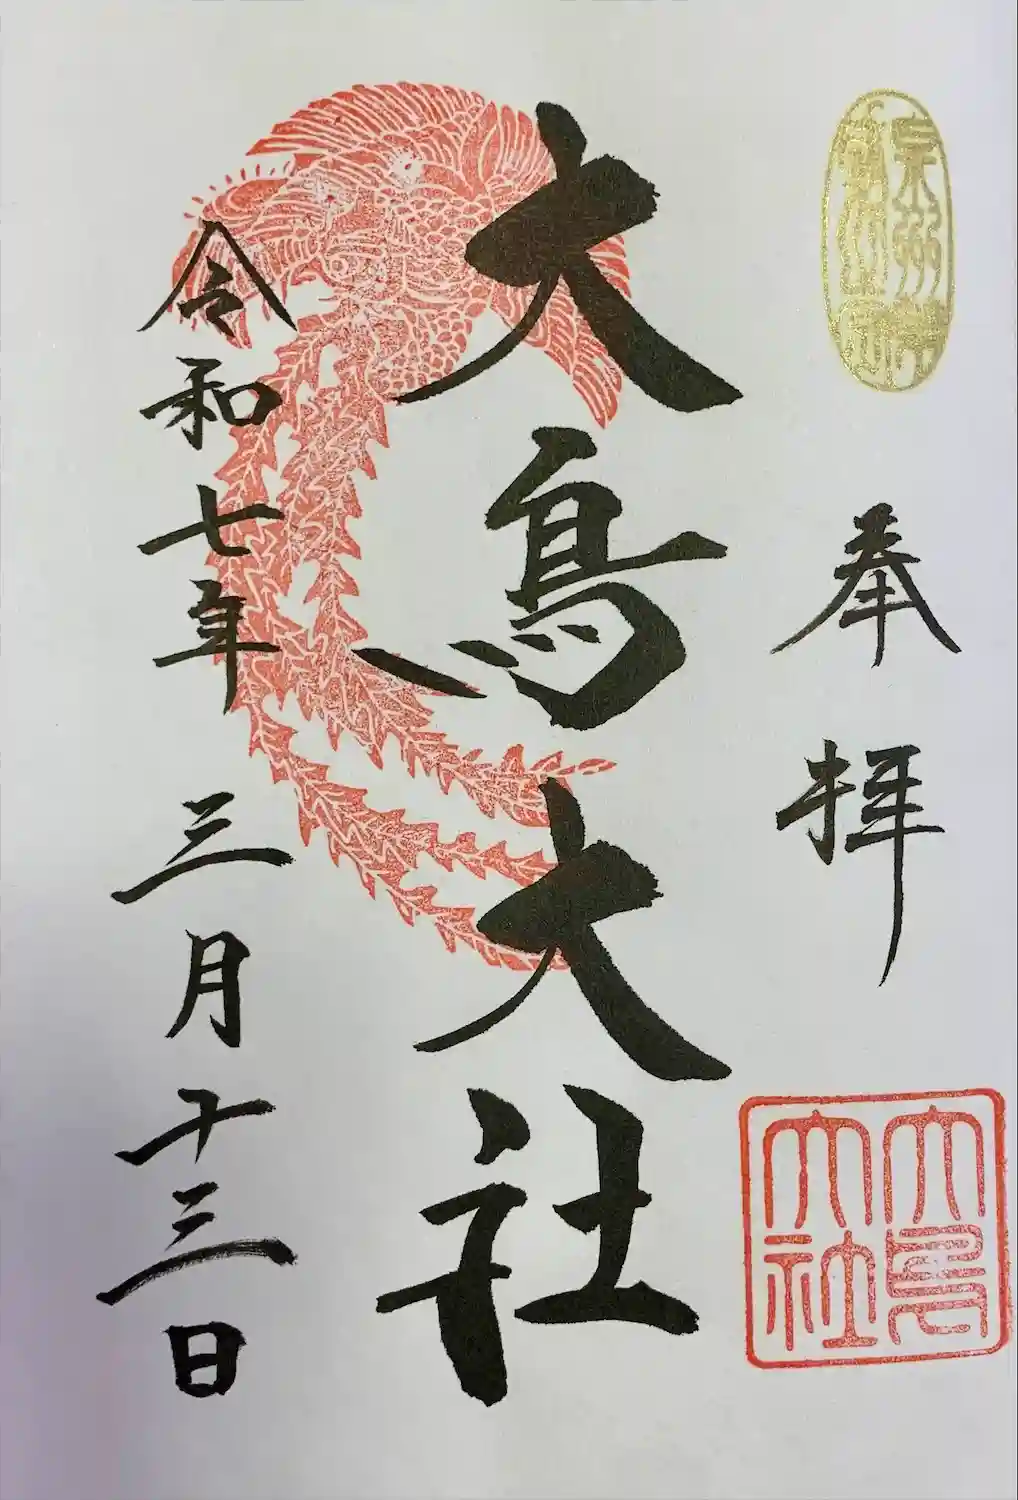 奉拝
大鳥大社
令和七年三月十三日
大鳥大社